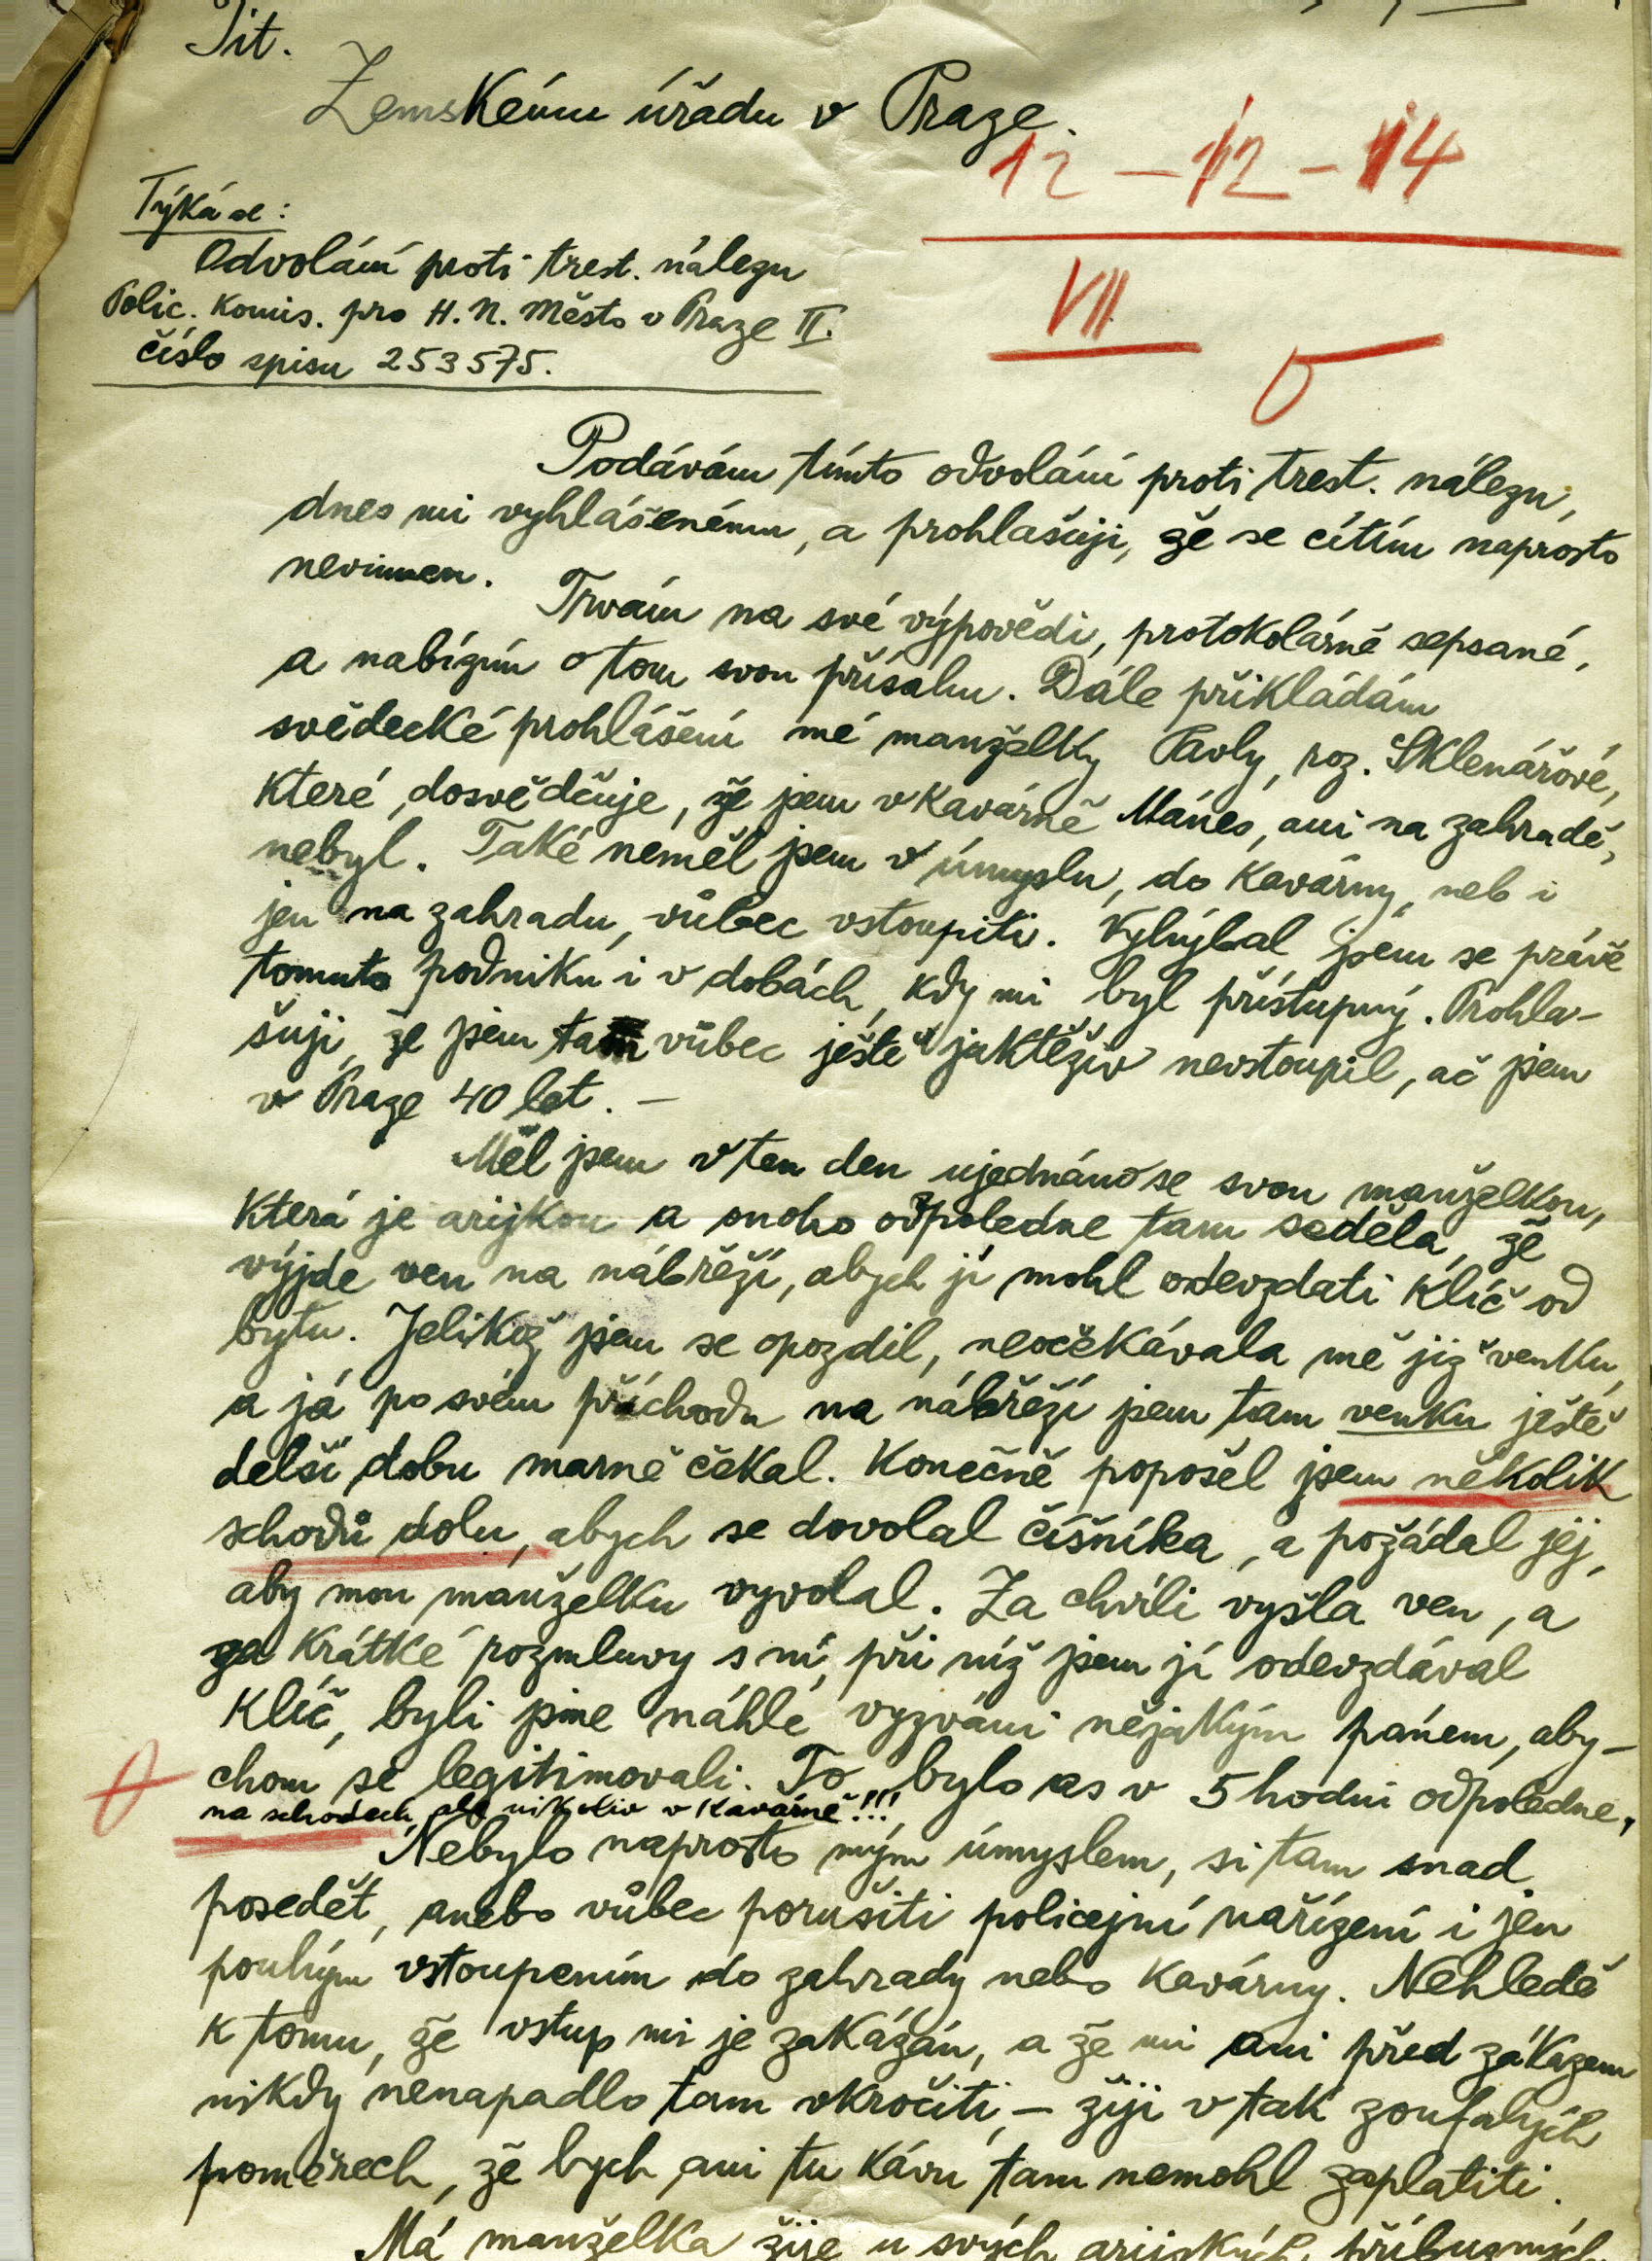 Tit.
Zemskému úřadu v Praze.
12 – 12 – 14
VII
Týká se:
Odvolání proti trest. nálezu
Polic. Komis. pro H. N. Město v Praze II.
číslo spisu 253575.
Podávám tímto odvolání proti trest. nálezu,
dnes mi vyhlášenému, a prohlašuji, že se cítím naprosto
nevinnen.
Trvám na své výpovědi, protokolárně sepsané,
a nabízím o tom svou přísahu. Dále přikládám
svědecké prohlášení mé manželky Pavly, roz. Sklenářové,
které dosvědčuje, že jsem v Kavárně Mánes, ani na zahradě,
nebyl. Také neměl jsem v úmyslu, do Kavárny, neb i
jen na zahradu, vůbec vstoupiti. Vyhýbal jsem se právě
tomuto podniku i v dobách, kdy mi byl přístupný. Prohla-
šuji, že jsem tam vůbec ještě jaktěživ nevstoupil, ač jsem
v Praze 40 let. –
Měl jsem v ten den ujednáno se svou manželkou,
která je arijkou a onoho odpoledne tam seděla, že
vyjde ven na nábřeží, abych jí mohl odevzdati klíč od
bytu. Jelikož jsem se opozdil, neočekávala mě již venku,
a já po svém příchodu na nábřeží jsem tam venku ještě
delší dobu marně čekal. Konečně popošel jsem několik
schodů dolu, abych se dovolal číšníka, a požádal jej,
aby mou manželku vyvolal. Za chvíli vyšla ven, a
za krátké rozmluvy s ní, při níž jsem jí odevzdával
klíč, byli jsme náhle vyzváni nějakým pánem, aby-
chom se legitimovali. To bylo as v 5 hodin odpoledne,
na schodech, ale nikoliv v kavárně!!!
Nebylo naprosto mým úmyslem, si tam snad
posedět, anebo vůbec porušiti policejní nařízení i jen
pouhým vstoupením do zahrady nebo Kavárny. Nehledě
k tomu, že vstup mi je zakázán, a že mi ani před zákazem
nikdy nenapadlo tam vkročiti, – žiji v tak zoufalých
poměrech, že bych ani tu kávu tam nemohl zaplatiti.
Má manželka žije u svých arijských příbuzných